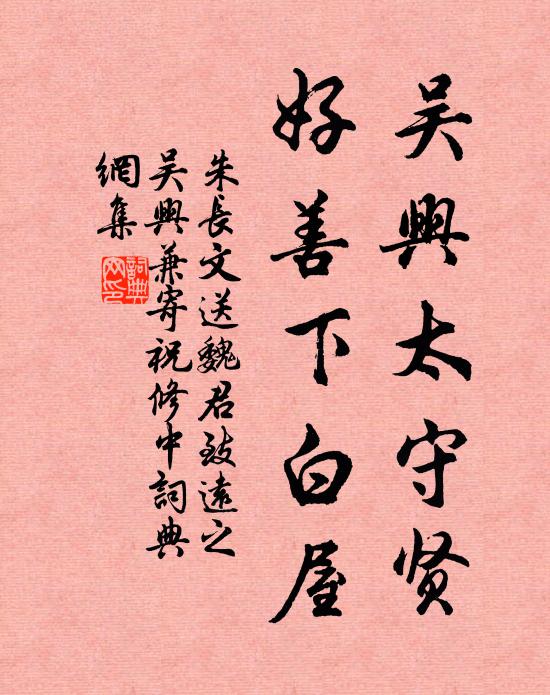 吴興太守贤
好善下白屋
朱長文送魏君致遠之
吴興兼寄祝修中詞典
網集
詞典網印